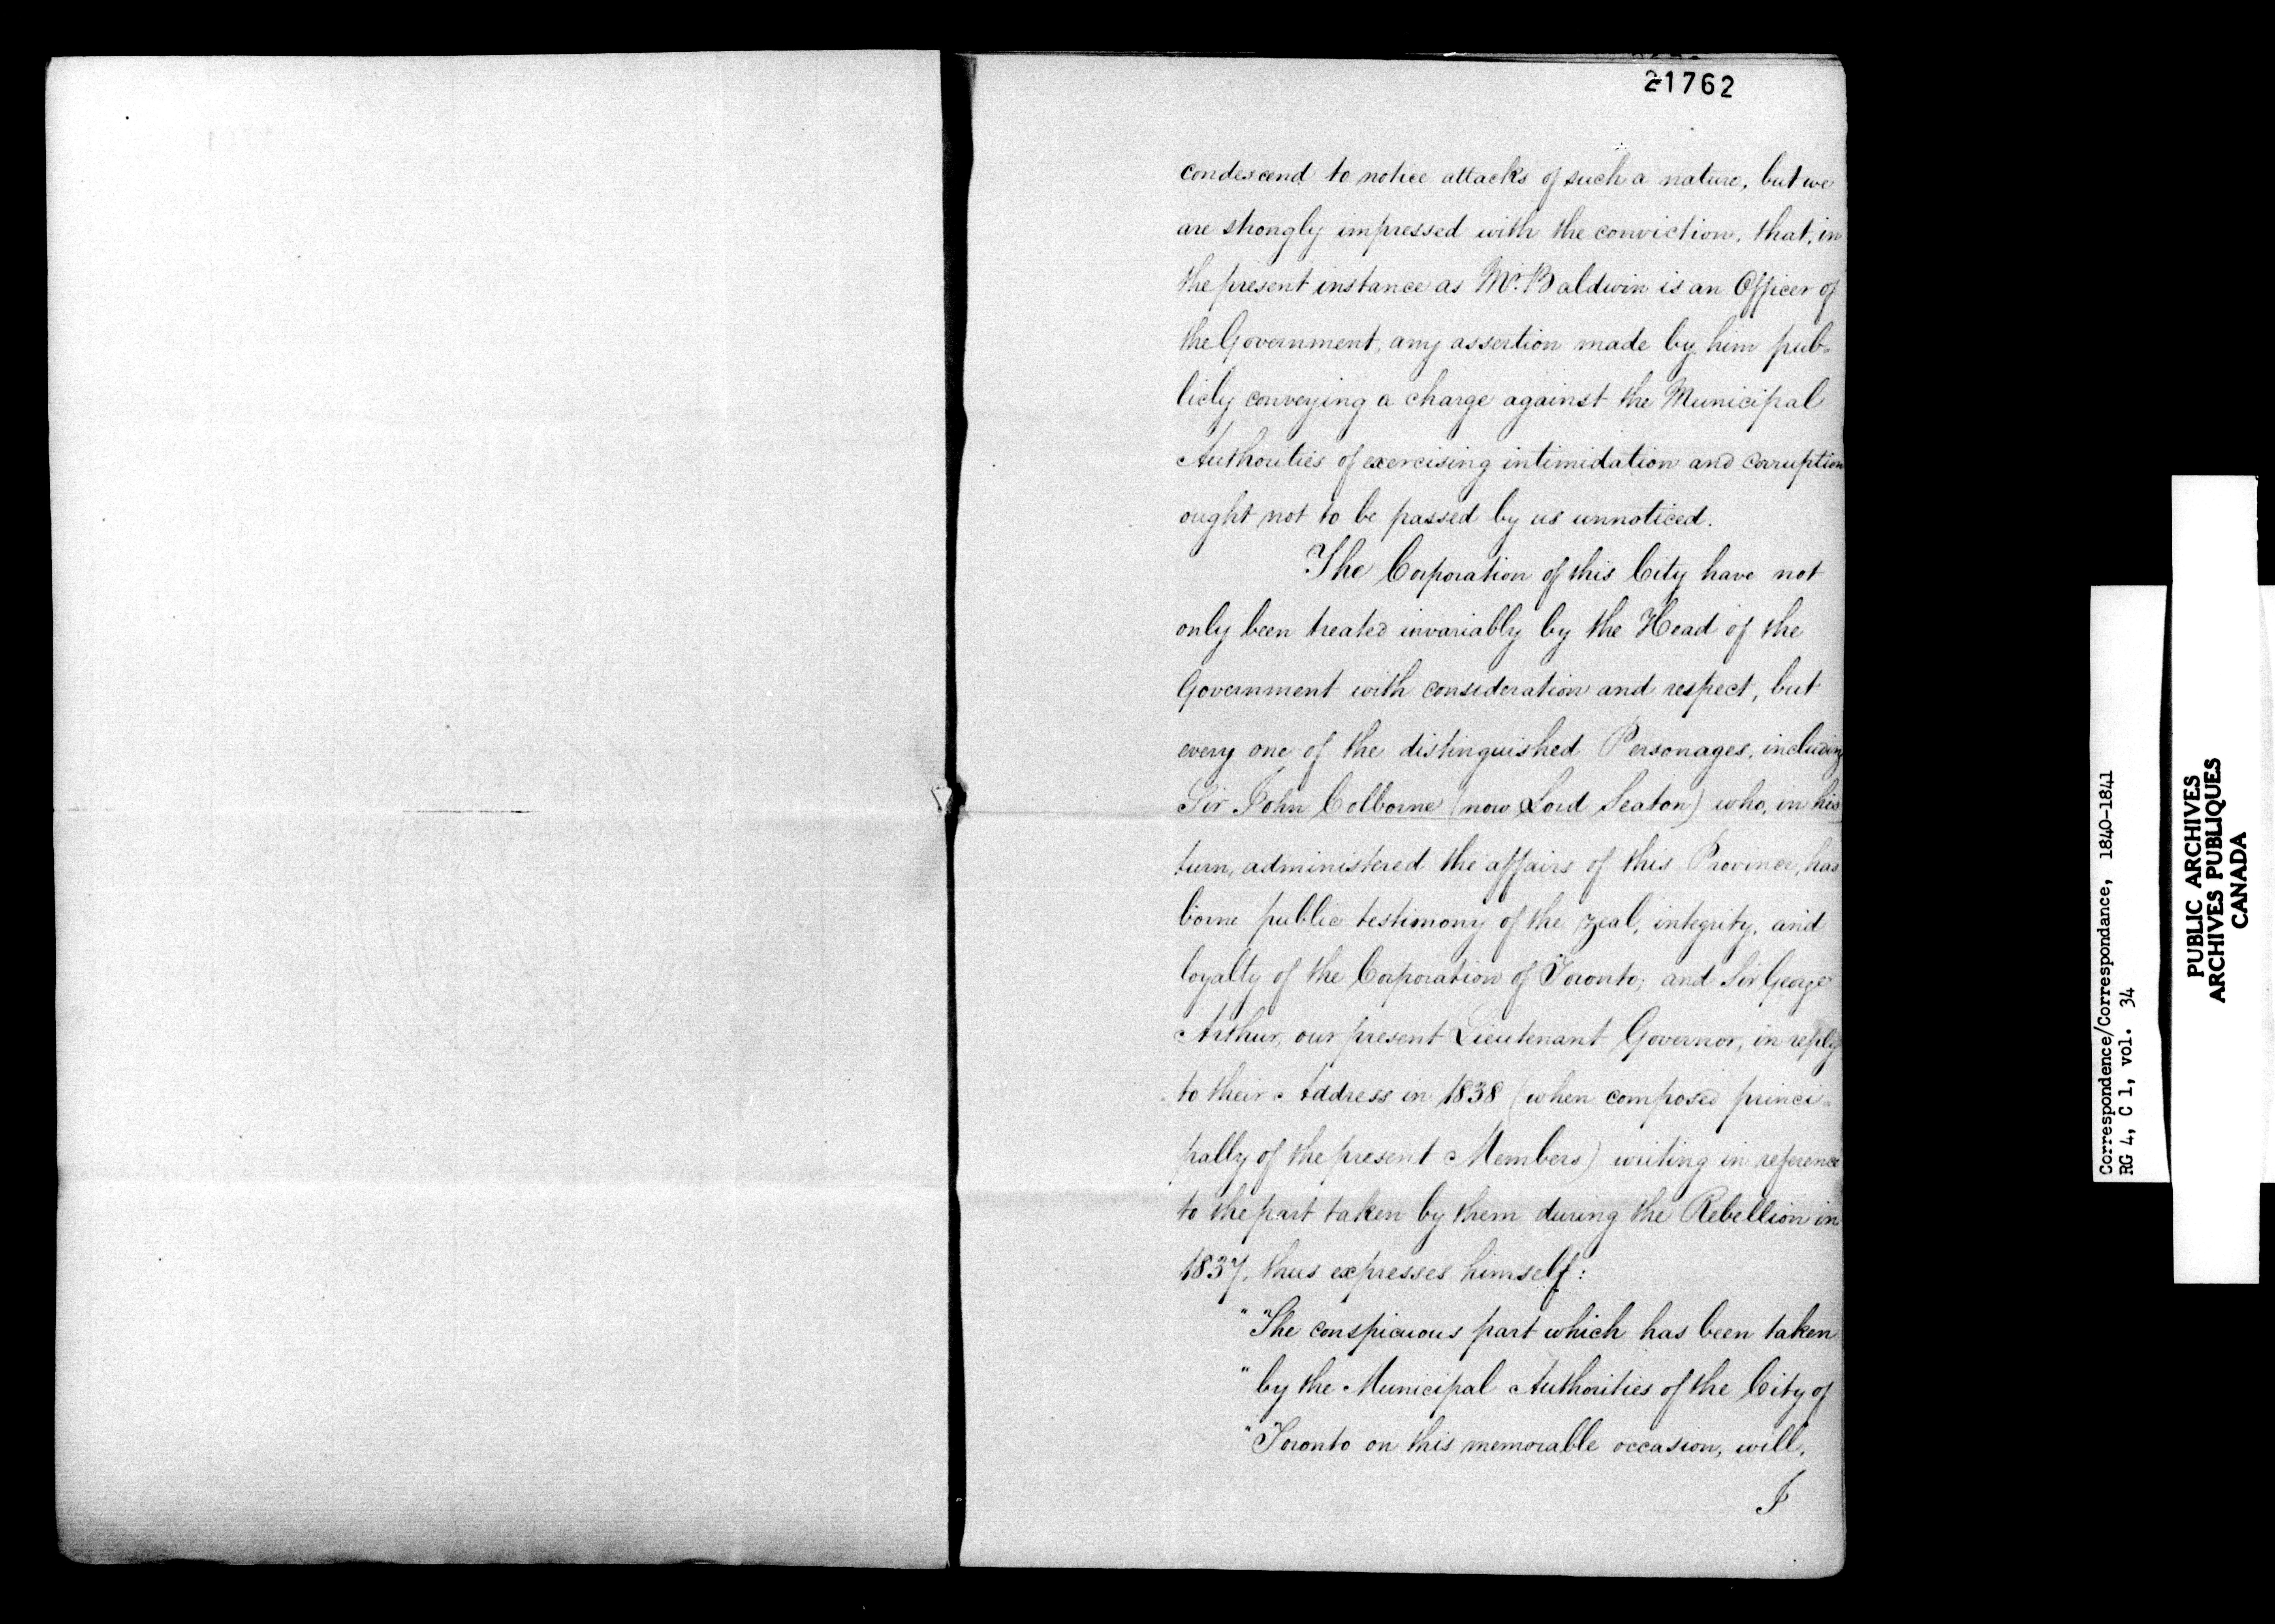 21762
condescend to notice attacks of such a nature, but we
are strongly impressed with the conviction, that, in
the present instance as Mr. Baldwin is an Officer of
the Government, any assertion made by him pub-
licly conveying a charge against the Municipal
Authorities of exercising intimidation and corruption
ought not to be passed by us unnoticed.
The Corporation of this City have not
only been treated invariably by the Head of the
Government with consideration and respect, but
every one of the distinguished Personages, including
Sir John Colborne (now Lord Seaton) who, in his
turn, administered the affairs of this Province, has
borne public testimony of the zeal, integrity, and
loyalty of the Corporation of Toronto; and Sir George
Arthur, our present Lieutenant Governor, in reply
to their Address in 1838 (when composed princi-
pally of the present Members) writing in reference
to the part taken by them during the Rebellion in
1837, thus expresses himself:
" "The conspicuous part which has been taken
" by the Municipal Authorities of the City of
" Toronto on this memorable occasion, will,
I
Correspondence/Correspondance, 1840-1841
RG 4, C 1, vol. 34
PUBLIC ARCHIVES
ARCHIVES PUBLIQUES
CANADA